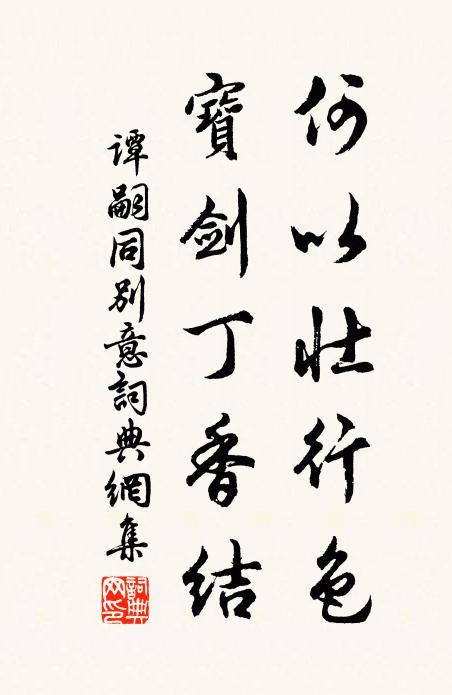 何以壮行色
寶剑丁香结
谭嗣同别意詞典網集
詞典网印